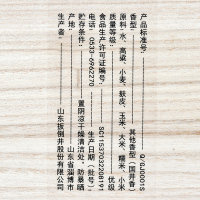 产品标准号：Q/GJ0001S
香型：其他香型（国井香）
原料：水、高粱、小麦、麸皮、玉米、大米、糯米、小米
质量等级：
食品生产许可证编号：SC11537032208191
电话：0533-6962270 生产日期（批号）：
贮存条件：置阴凉干燥清洁处，防暴晒
产地：山东省淄博市
生产者：山东扳倒井股份有限公司